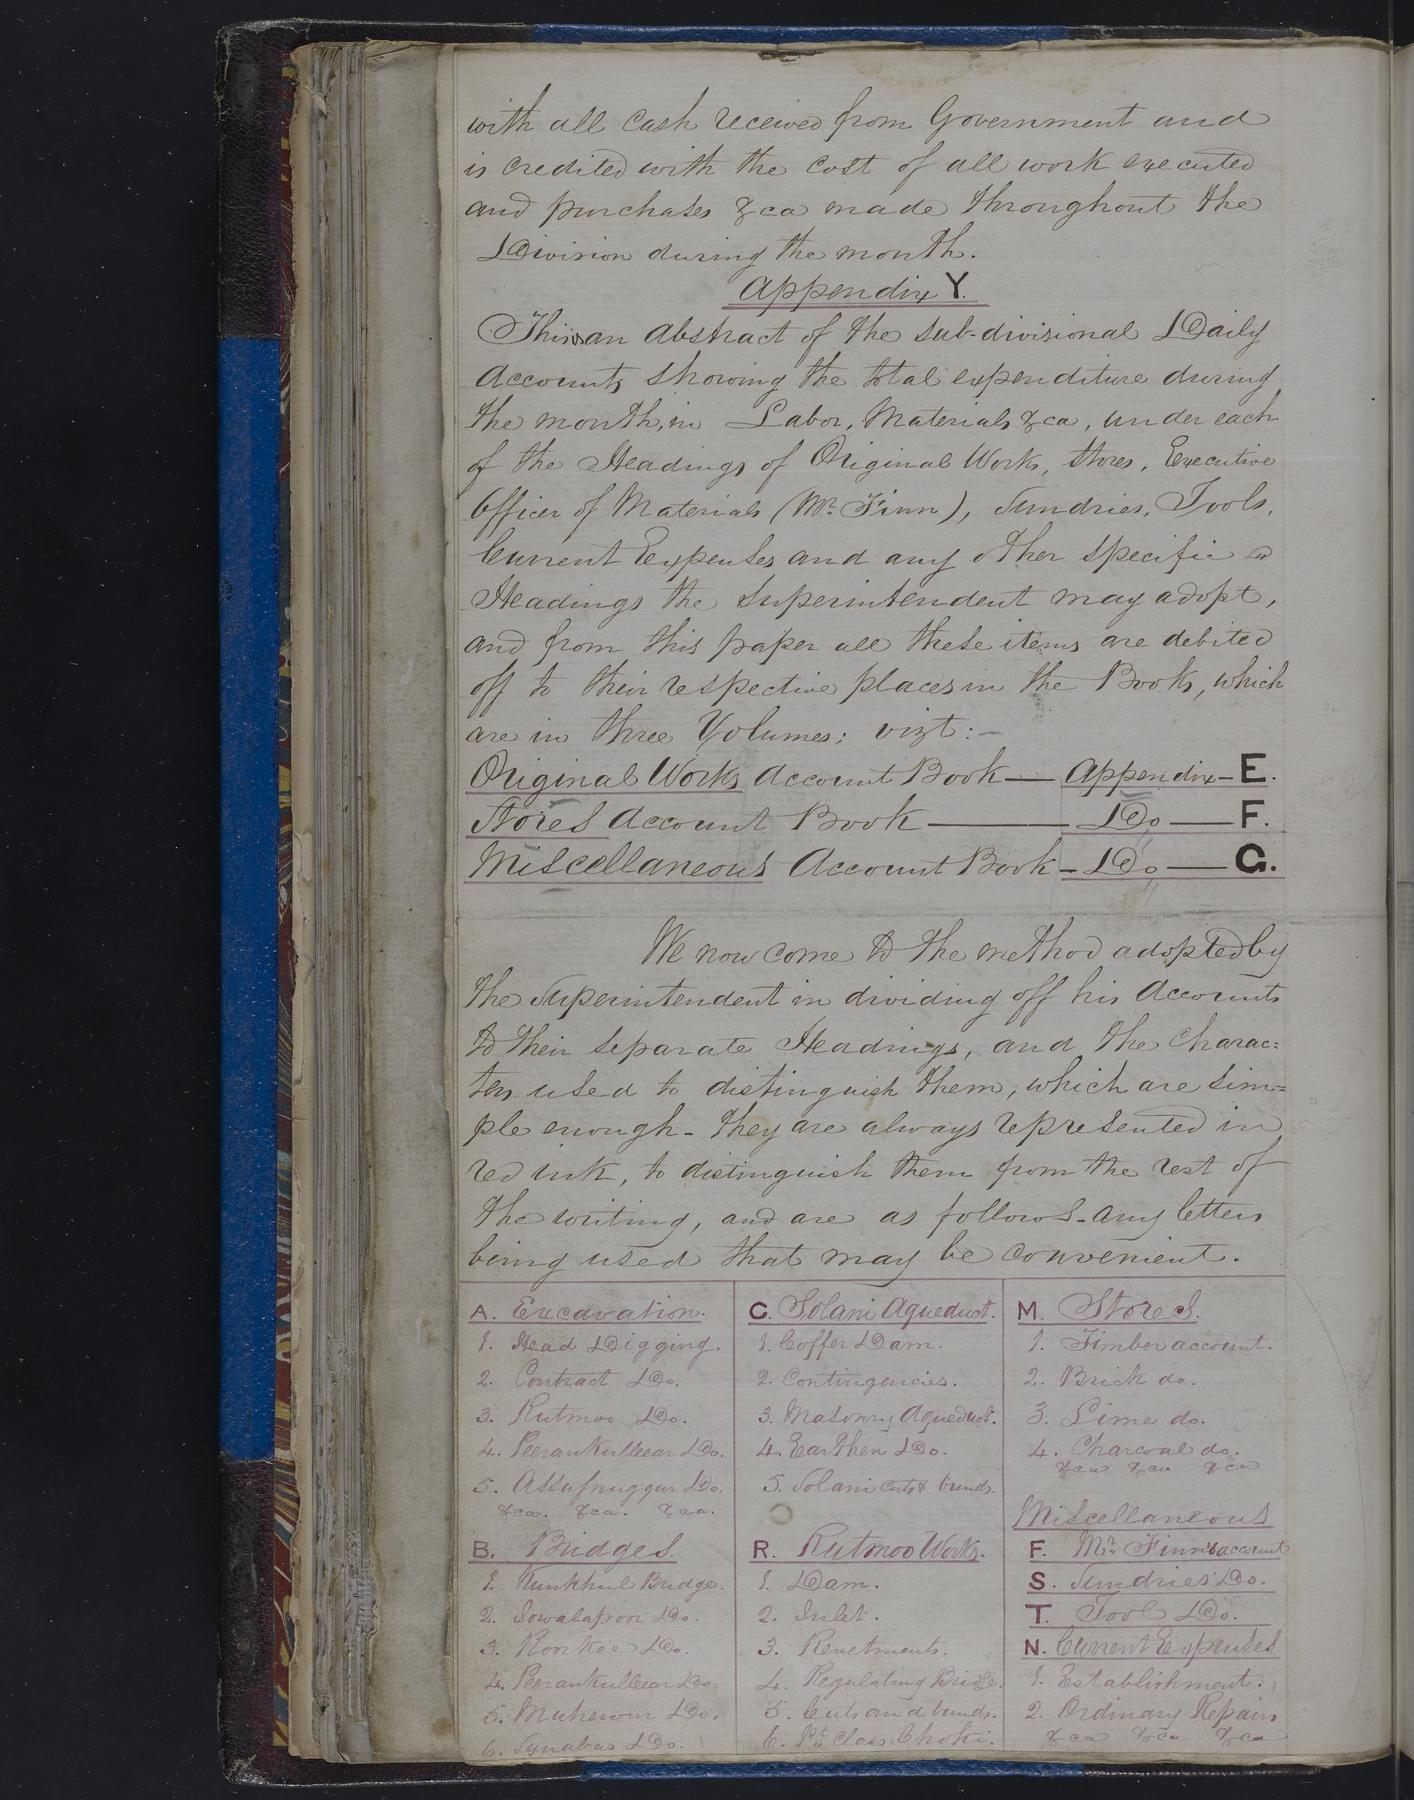 with all Cash received from Government and
is credited with the cost of all work executed
and purchases &ca made throughout the
Division during the month.
Appendix Y.
This is an abstract of the sub-divisional Daily
Accounts, showing the total expenditure during
the month, in Labor, Materials &ca, under each
of the Headings of Original Works, Stores, Executive
Officer of Materials (Mr. Finn), Sundries, Tools,
Current Expenses and any other specific
Headings the Superintendent may adopt,
and from this paper all these items are debited
off to their respective places in the Books, which
are in three Volumes; vizt:-
Original Works Account Book — Appendix — E.
Stores Account Book — Do — F.
Miscellaneous Account Book — Do — G.
We now come to the method adopted by
the Superintendent in dividing off his Accounts
to their separate Headings, and the Charac=
ters used to distinguish them, which are sim=
ple enough - they are always represented in
red ink, to distinguish them from the rest of
the writing, and are as follows - any letters
being used that may be convenient.
A. Excavation.
1. Head Digging.
2. Contract Do.
3. Rutmoo Do.
4. Peerankulleear Do.
5. Assufnuggur Do.
&ca. &ca. &ca.
B. Bridges.
1. Kunkhul Bridge.
2. Jowalapoor Do.
3. Roorkee Do.
4. Peerankulleear Do.
5. Muhewur Do.
6. Do.
C. Solani Aqueduct.
1. Coffer Dam.
2. Contingencies.
3. Masonry Aqueduct.
4. Earthen Do.
5. Solani Cuts & bunds.
R. Rutmoo Works.
1. Dam.
2. Inlet.
3. Revetments.
4. Regulating Bridge.
5. Cuts and bunds.
6. 1st Class Choki.
M. Stores.
1. Timber account.
2. Brick do.
3. Lime do.
4. Charcoal do.
&ca &ca &ca
Miscellaneous
F. Mr. Finn's account
S. Sundries Do.
T. Tool Do.
N. Current Expenses
1. Establishment.
2. Ordinary Repairs
&ca &ca &ca